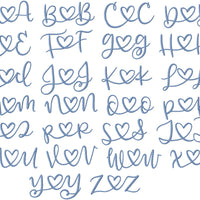 ♡A B♡B C♡C D♡
♡E F♡F G♡G H♡
♡I J♡J K♡K L♡
♡M N♡N O♡O P♡
♡ R♡R S♡S T♡
♡U V♡V W♡W X♡
Y♡Y Z♡Z